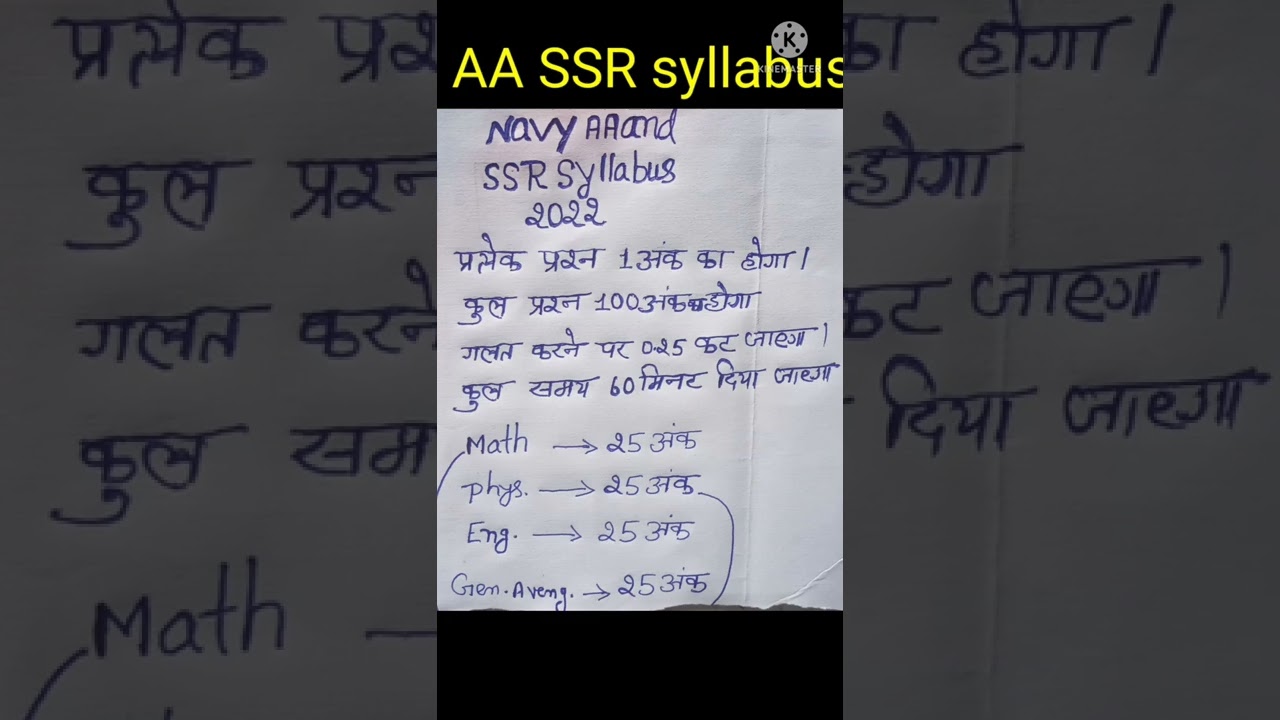 AA SSR syllabus
KINEMASTER
Navy AA and
SSR Syllabus
2022
प्रत्येक प्रश्न 1 अंक का होगा।
कुल प्रश्न 100 अंक होगा
गलत करने पर 0.25 कट जाएगा।
कुल समय 60 मिनट दिया जाएगा
Math → 25 अंक
Phys. → 25 अंक
Eng. → 25 अंक
Gen. Aveng. → 25 अंक